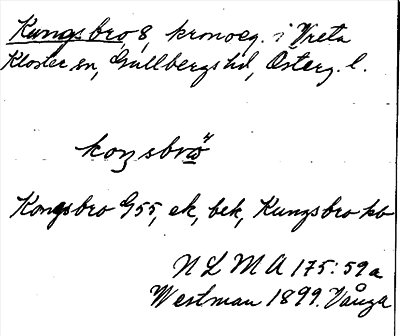 Kungsbro, 8, kronoeg. i Vreta
Kloster sn, Gullbergs hd, Österg. l.
koŋsbrω̋
Kongsbro G55, ek, bek, Kungsbro kb
N L M A 175:59a
Westman 1899. Vånga